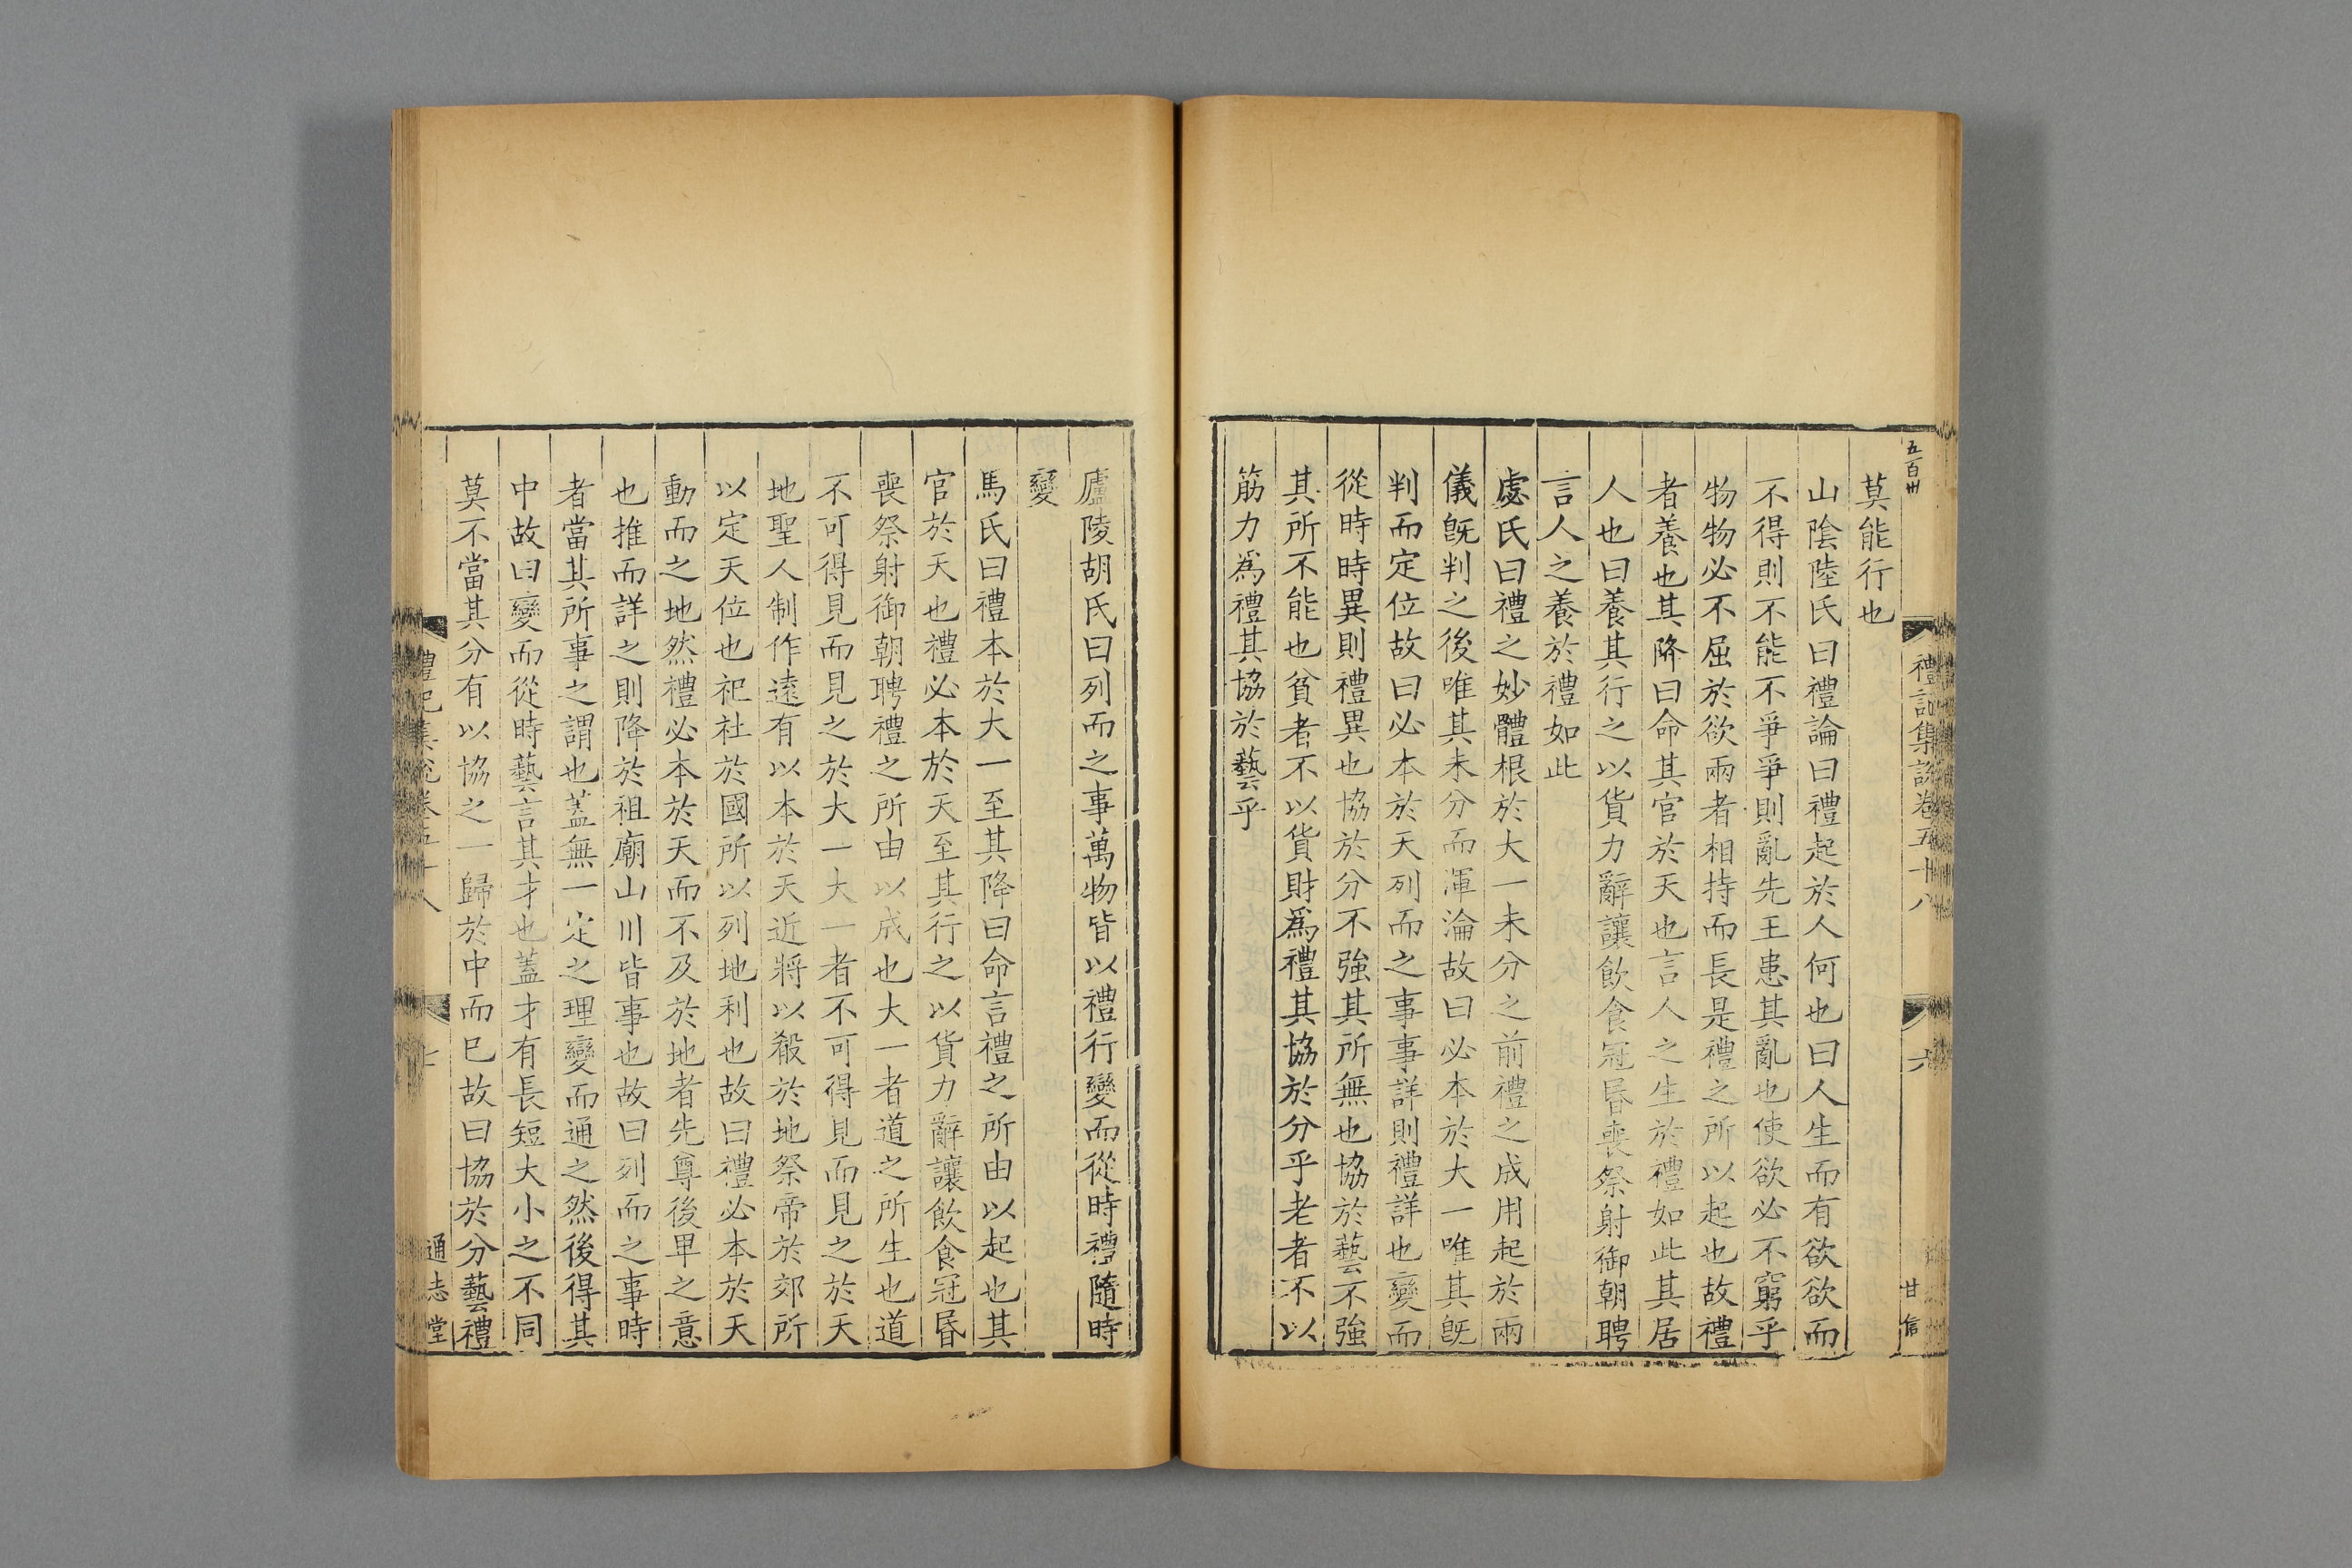 五百卅
禮記集說卷五十八
六
甘信
莫能行也
山陰陸氏曰禮論曰禮起於人何也曰人生而有欲欲而
不得則不能不爭爭則亂先王患其亂也使欲必不窮乎
物物必不屈於欲兩者相持而長是禮之所以起也故禮
者養也其降曰命其官於天也言人之生於禮如此其居
人也曰養其行之以貨力辭讓飲食冠昏喪祭射御朝聘
言人之養於禮如此
處氏曰禮之妙體根於大一未分之前禮之成用起於兩
儀旣判之後唯其未分而渾淪故曰必本於大一唯其旣
判而定位故曰必本於天列而之事事詳則禮詳也變而
從時時異則禮異也協於分不強其所無也協於藝不強
其所不能也貧者不以貨財爲禮其協於分乎老者不以
筋力爲禮其協於藝乎
廬陵胡氏曰列而之事萬物皆以禮行變而從時禮隨時
變
馬氏曰禮本於大一至其降曰命言禮之所由以起也其
官於天也禮必本於天至其行之以貨力辭讓飲食冠昏
喪祭射御朝聘禮之所由以成也大一者道之所生也道
不可得見而見之於大一大一者不可得見而見之於天
地聖人制作遠有以本於天近將以殽於地祭帝於郊所
以定天位也祀社於國所以列地利也故曰禮必本於天
動而之地然禮必本於天而不及於地者先尊後卑之意
也推而詳之則降於祖廟山川皆事也故曰列而之事時
者當其所事之謂也蓋無一定之理變而通之然後得其
中故曰變而從時藝言其才也蓋才有長短大小之不同
莫不當其分有以協之一歸於中而已故曰協於分藝禮
禮記集說卷五十八
七
通志堂